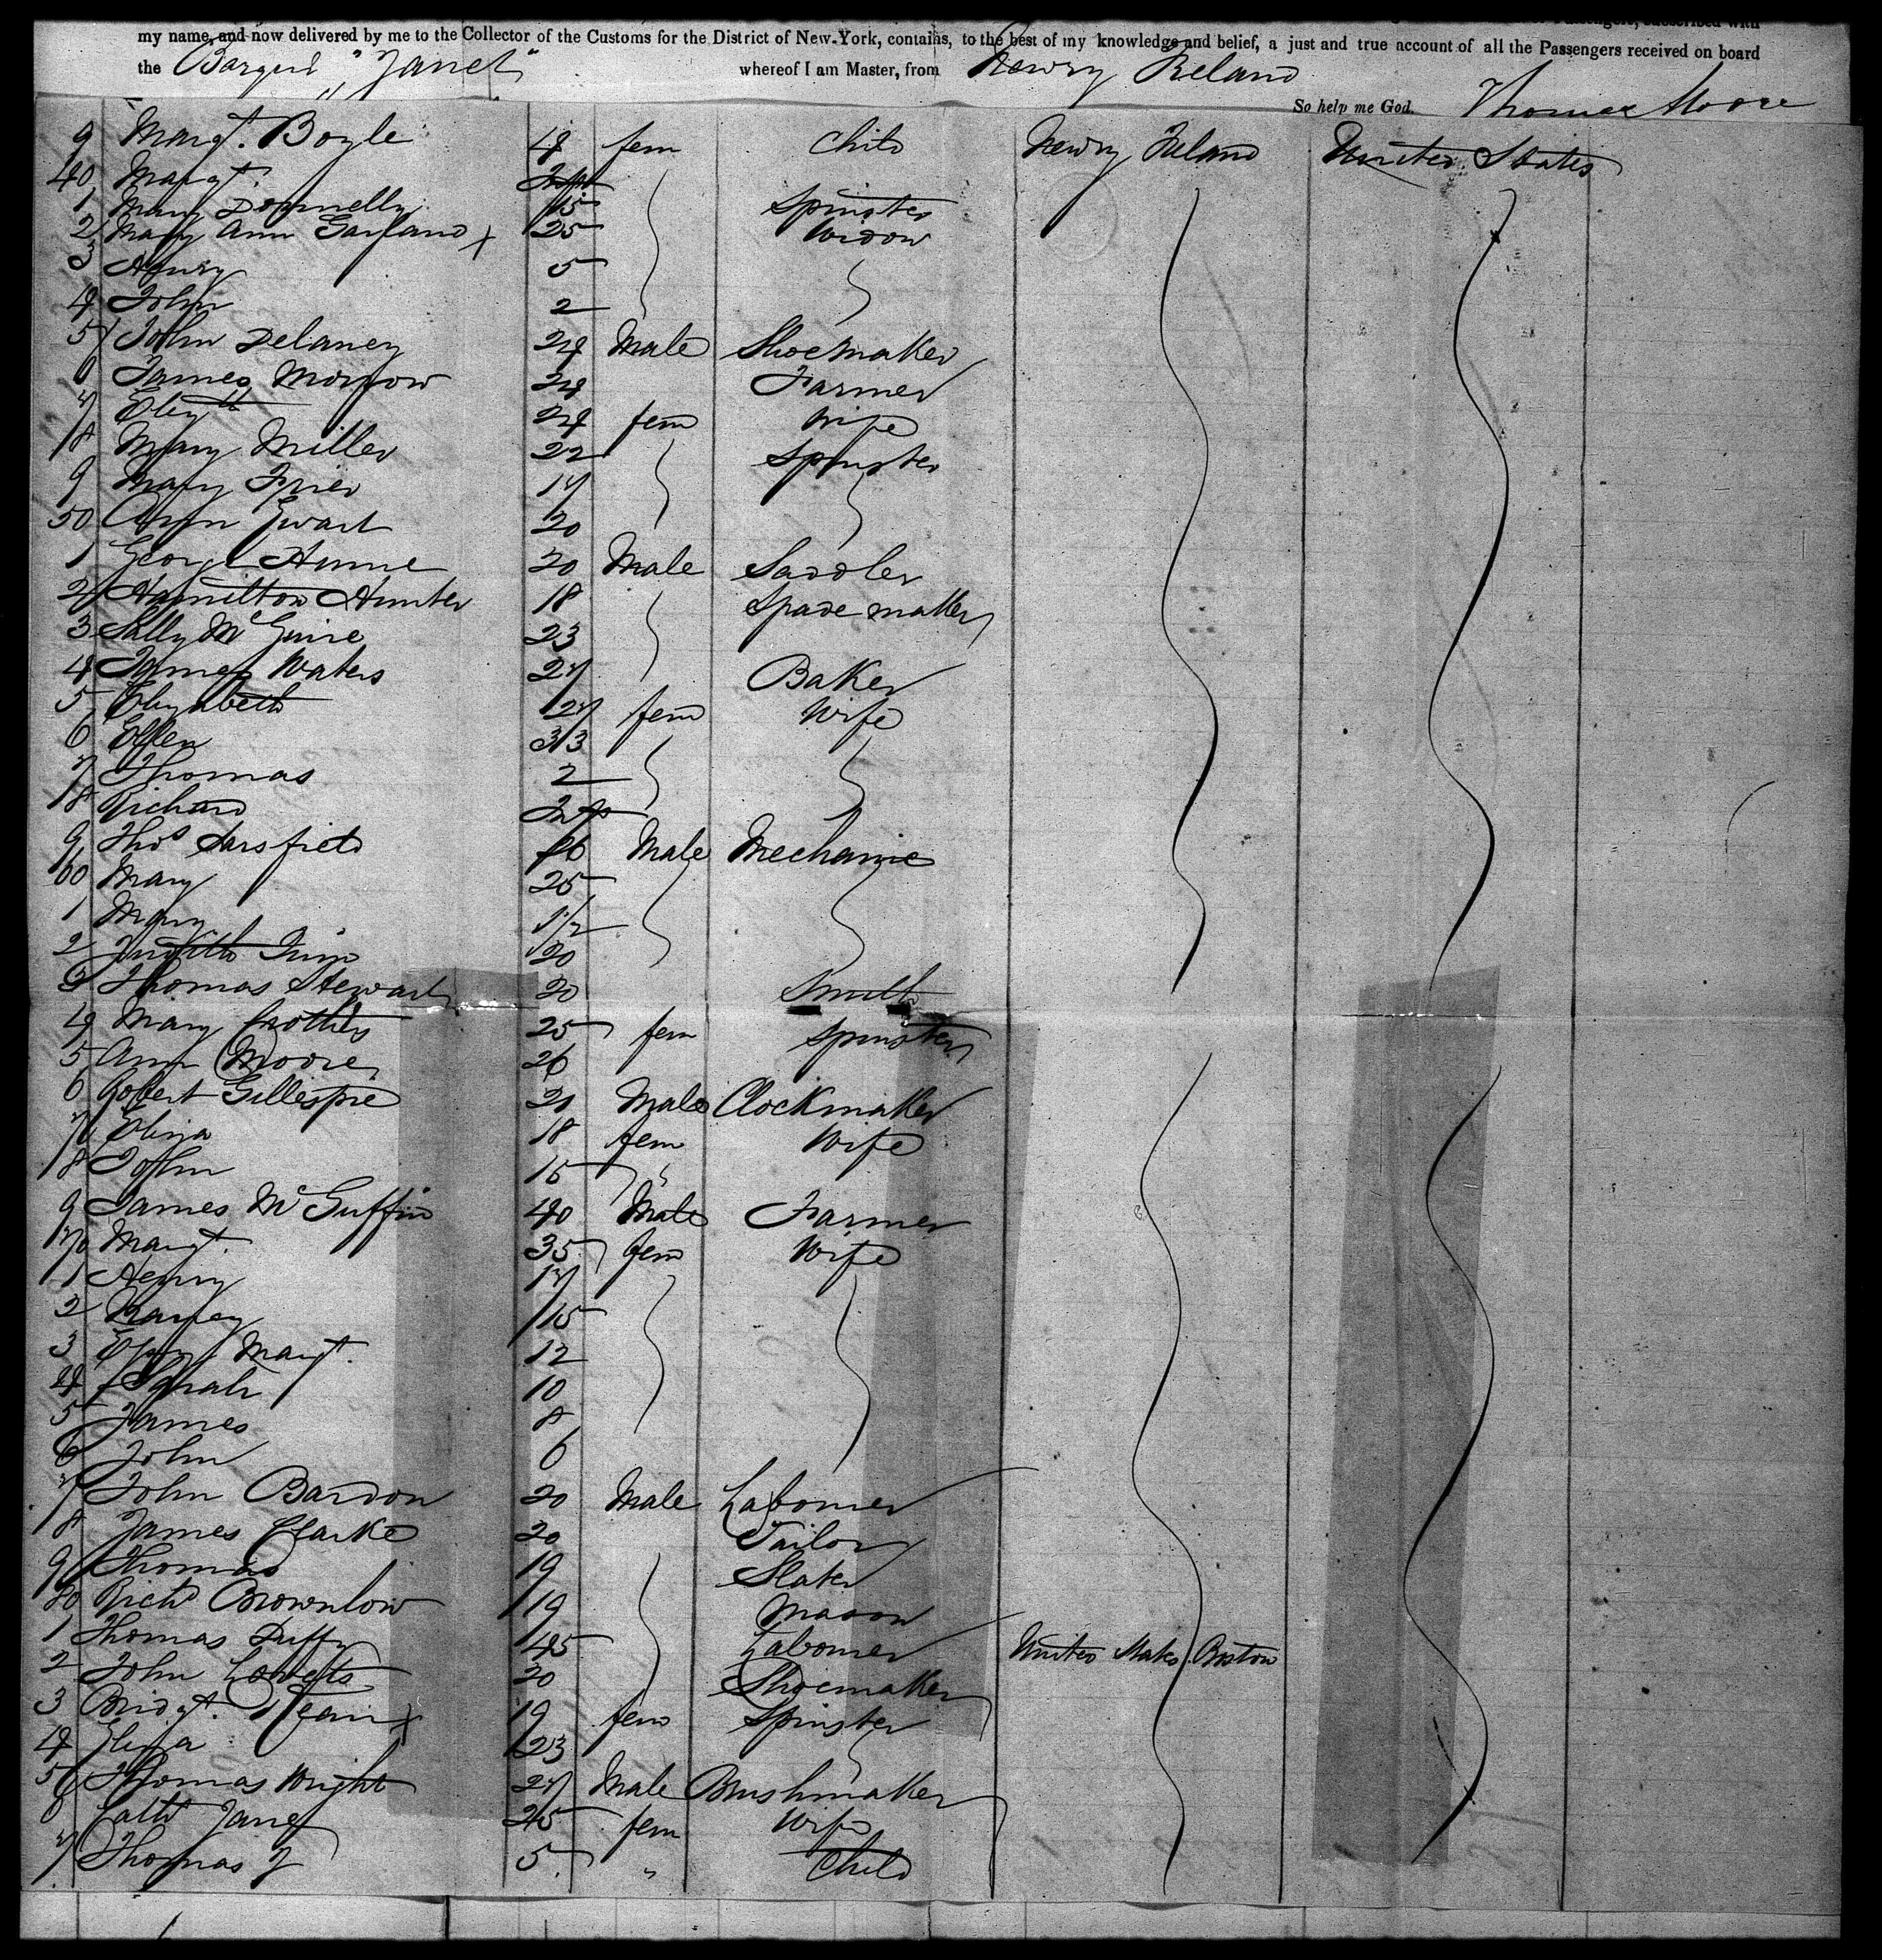 my name, and now delivered by me to the Collector of the Customs for the District of New-York, contains, to the best of my knowledge and belief, a just and true account of all the Passengers received on board
the Barque "Janet" whereof I am Master, from Newry Ireland
So help me God. Thomas Moore
9 Margt. Boyle 4 fem Child Newry Ireland United States
40 Margt. Inft
1 Mary Donnelly 15 Spinster
2 Mary Ann Garland x 25 Widow
3 Henry 5
4 John 2
5 John Delaney 24 Male Shoemaker
6 James Morrow 24 Farmer
7 Elizth 24 fem Wife
8 Mary Miller 22 Spinster
9 Mary Frier 17
50 Ann Ewart 20
1 George Hume 20 Male Saddler
2 Hamilton Hunter 18 Spade maker
3 Sally McGuire 23
4 James Waters 27 Baker
5 Elizabeth 27 fem Wife
6 Ellen 3
7 Thomas 2
8 Richard Inft
9 Thos Sarsfield 26 Male Mechanic
60 Mary 25
1 Mary 1/2
2 Judith 20
3 Thomas Stewart 20 Smith
4 Mary Crothers 25 fem Spinster
5 Ann Moore 26
6 Robert Gillespie 20 Male Clockmaker
7 Eliza 18 fem Wife
8 John 15 "
9 James McGuffin 40 Male Farmer
70 Margt. 35 fem Wife
1 Henry 17
2 15
3 Margt. 12
4 Sarah 10
5 James 8
6 John 6
7 John Bardon 20 Male Labourer
8 James Clarke 20 Tailor
9 Thomas 19 Slater
80 Richd Brownlow 19 Mason
1 Thomas Duffy 45 Labourer United States Boston
2 John 20 Shoemaker
3 Bridgt. x 19 fem Spinster
4 Eliza 23
5 Thomas Wright 27 Male Brushmaker
6 Cath Jane 25 fem Wife
7 Thomas J 5 " Child